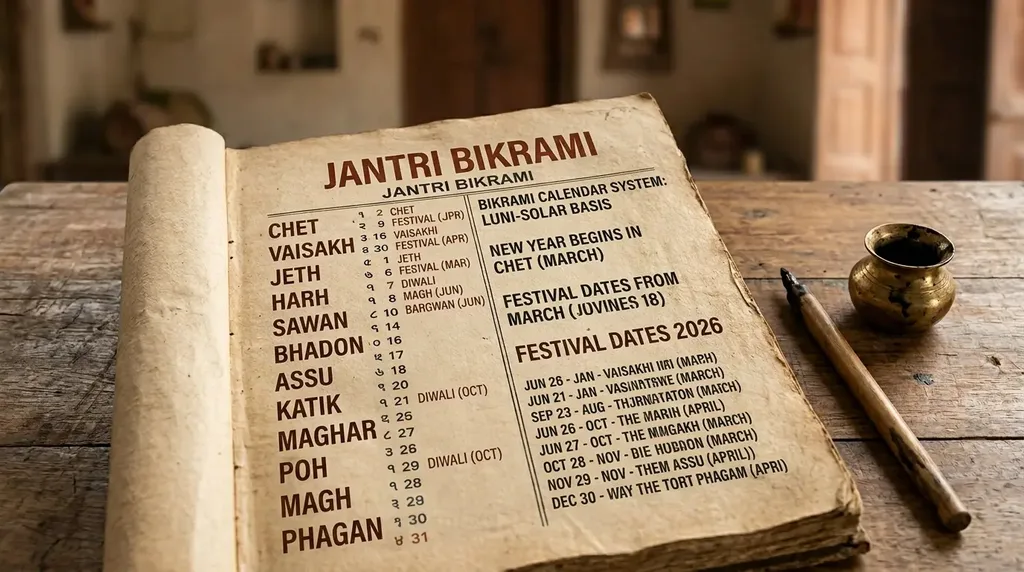 JANTRI BIKRAMI
JANTRI BIKRAMI
CHET
VAISAKH
JETH
HARH
SAWAN
BHADON
ASSU
KATIK
MAGHAR
POH
MAGH
PHAGAN
2 CHET
9 FESTIVAL (JPR)
16 VAISAKHI
30 FESTIVAL (APR)
1 JETH
6 FESIVAL (MAR)
7 DIWALI
8 MAGH (JUN)
10 BARGWAN (JUN)
14
16
17
20
21 DIWALI (OCT)
25
27
26
29 DIWALI (OCT)
28
29
30
31
BIKRAMI CALENDAR SYSTEM:
LUNI-SOLAR BASIS
NEW YEAR BEGINS IN
CHET (MARCH)
FESTIVAL DATES FROM
MARCH (JOVINES 18)
FESTIVAL DATES 2026
JUN 26 - JAN - VAISAKHI (MARH)
JUN 21 - JAN - (MARCH)
SEP 23 - AUG - (MATCH)
JUN 26 - OCT - THE MARIH (APRIL)
JUN 27 - OCT - THE MMGAKH (MARCH)
OCT 28 - NOV - DIE (MARCH)
NOV 29 - NOV - THEM ASSU (APRIL))
DEC 30 - WAY THE TORT PHAGAM (APRI)